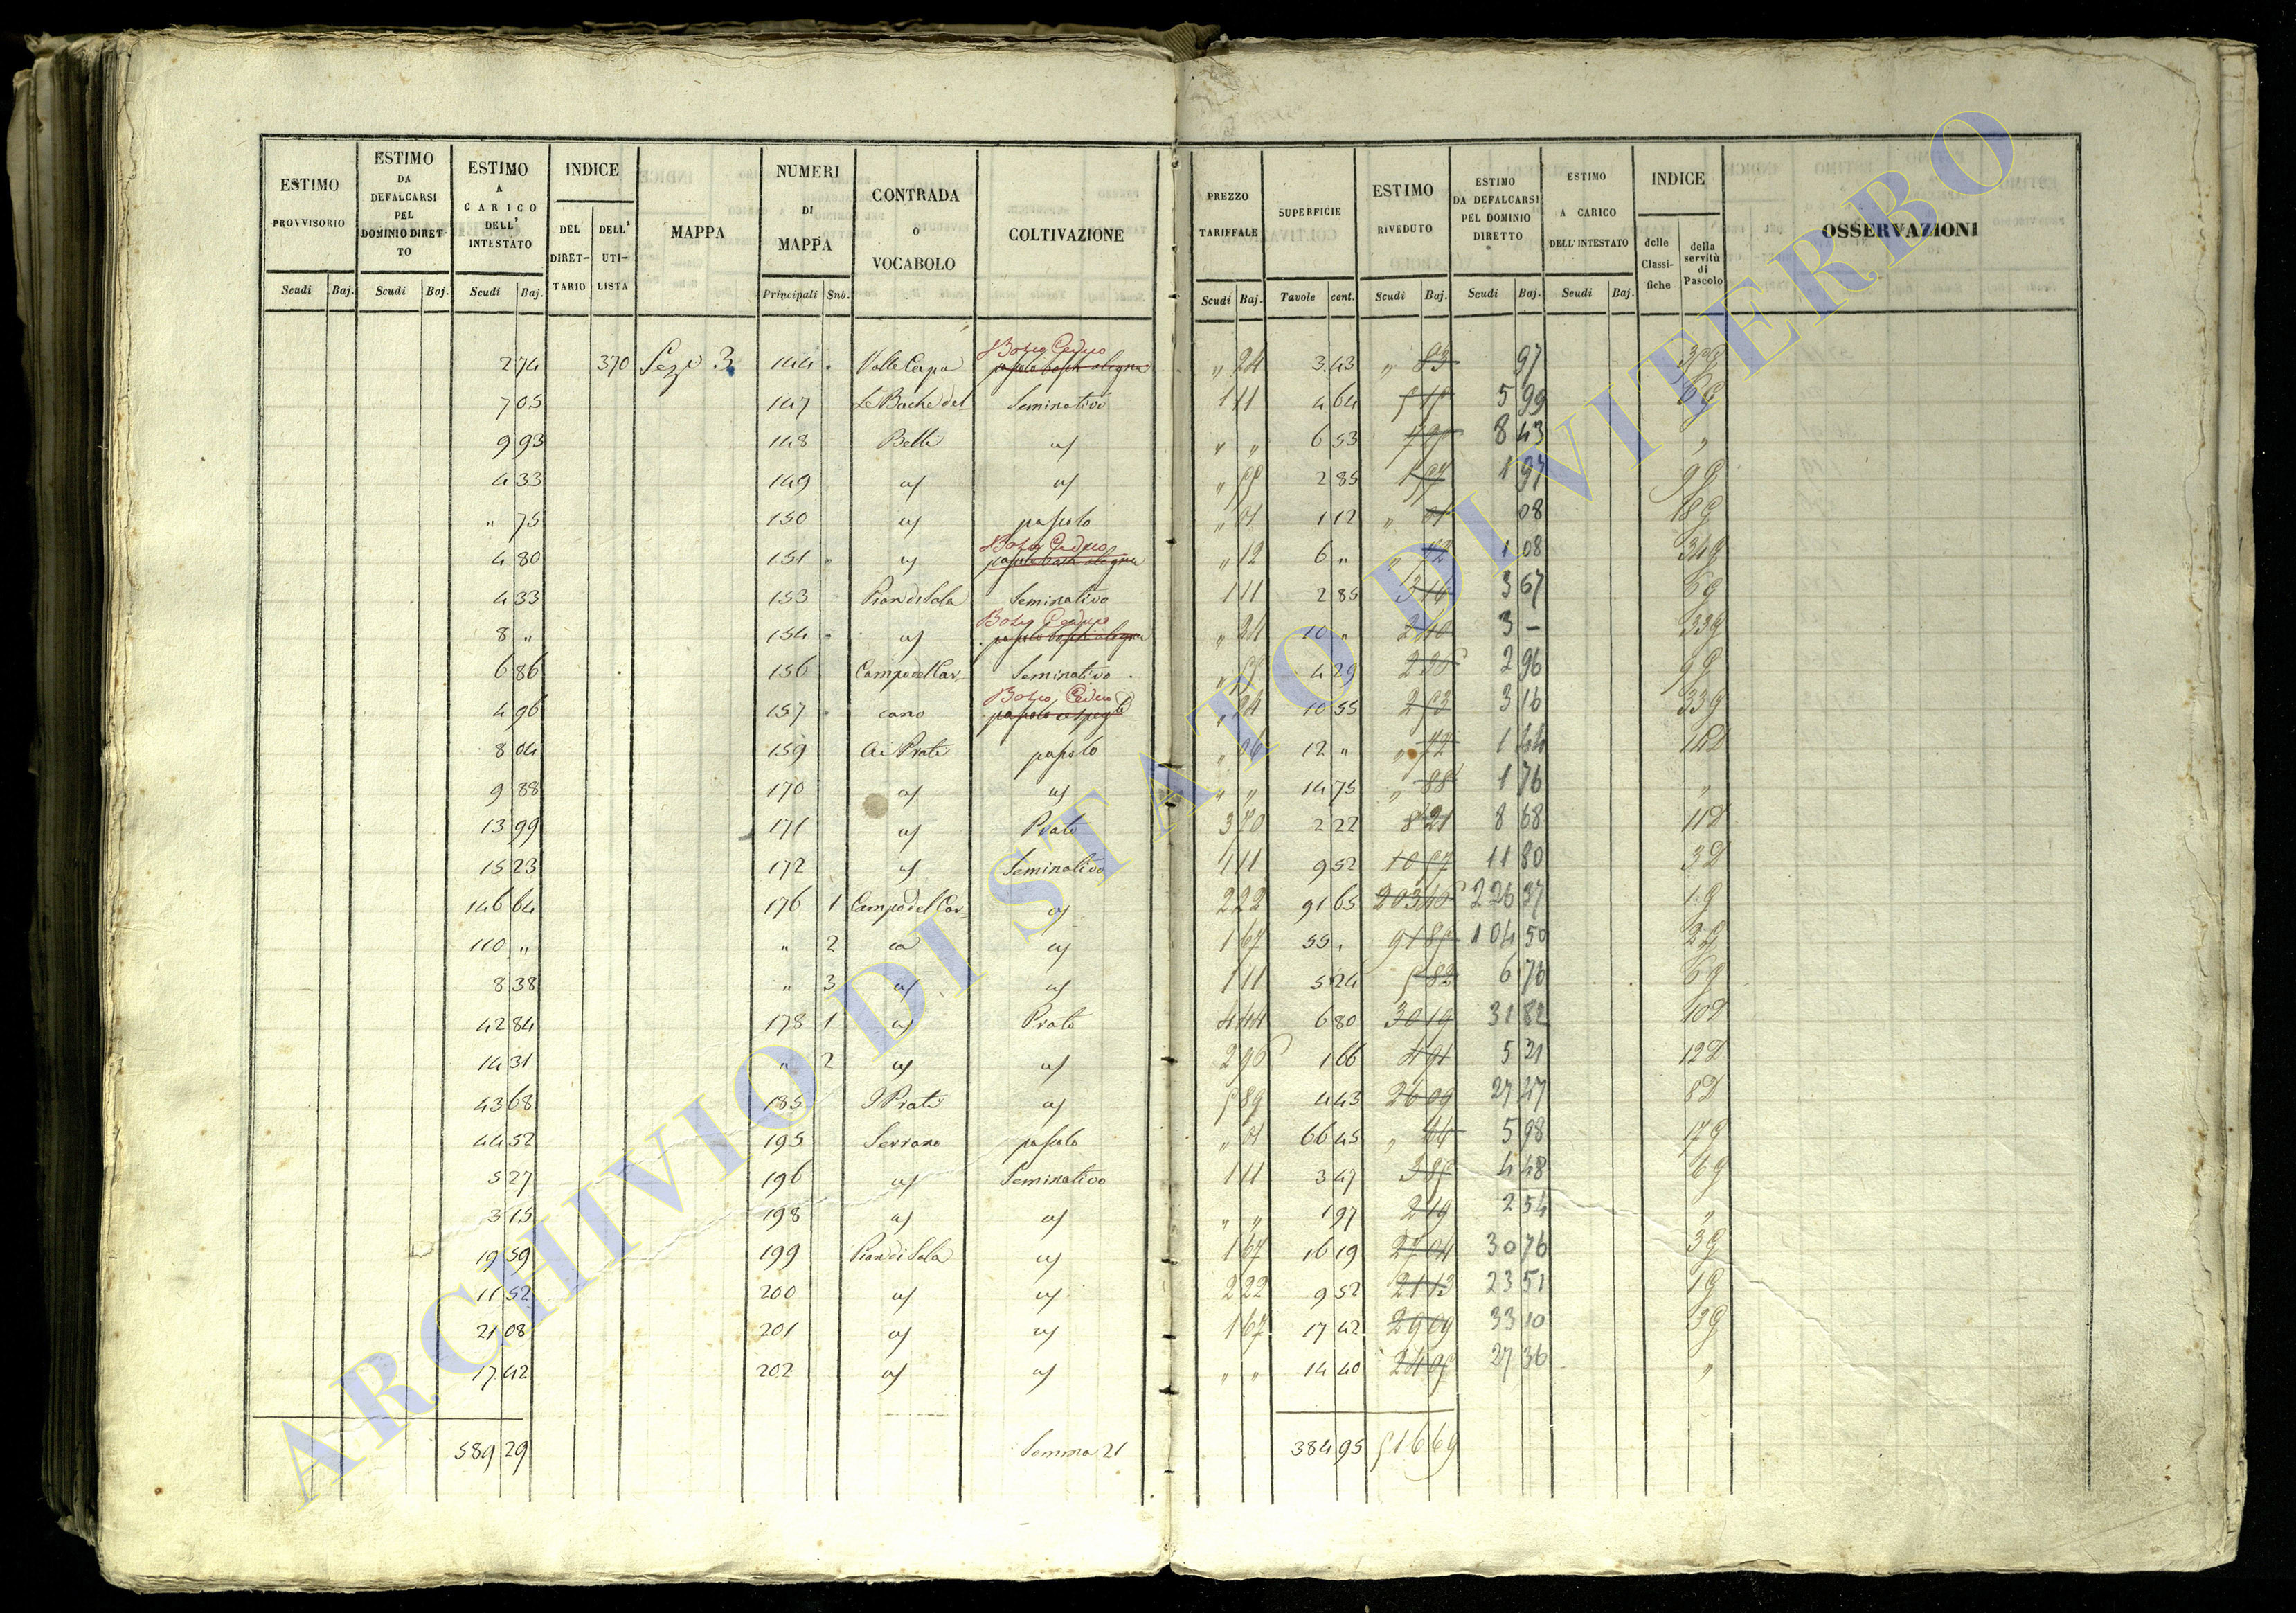 ESTIMO PROVVISORIO | ESTIMO DA DEFALCARSI PEL DOMINIO DIRET-TO | ESTIMO A CARICO DELL' INTESTATO | INDICE DEL DIRET-TARIO | DELL' UTI-LISTA | MAPPA | NUMERI DI MAPPA | CONTRADA O VOCABOLO | COLTIVAZIONE | PREZZO TARIFFALE | SUPERFICIE | ESTIMO RIVEDUTO | ESTIMO DA DEFALCARSI PEL DOMINIO DIRETTO | ESTIMO A CARICO DELL'INTESTATO | INDICE delle Classi-fiche | della servitù di Pascolo | OSSERVAZIONI
Scudi | Baj. | Scudi | Baj. | Scudi | Baj. | Principali | Sub. | Scudi | Baj. | Tavole | cent. | Scudi | Baj. | Scudi | Baj. | Scudi | Baj.
2 74 | 370 | Sez. 3 | 144 | Valle Cerpa | Bosco Ceduo | " 24 | 3 43 | " 83 | 97
7 05 | 147 | Le Bache del | Seminativo | 1 11 | 4 64 | 5 15 | 5 99 | 6 g
9 93 | 148 | Belli | " " | 6 53 | 7 25 | 8 43 | "
4 33 | 149 | " 55 | 2 85 | 1 57 | 1 97 | 9 g
" 75 | 150 | pascolo | " 01 | 1 12 | " 01 | 08 | 18 g
4 80 | 151 | Bosco Ceduo | " 12 | 6 " | " 72 | 1 08 | 34 g
4 33 | 153 | Pian di Sala | Seminativo | 1 11 | 2 85 | 3 16 | 3 67 | 6 g
8 " | 154 | Bosco Ceduo | " 24 | 10 " | 2 40 | 3 – | 33 g
6 86 | 156 | Campo del Car- | Seminativo | " 55 | 4 29 | 2 96 | 9 g
4 96 | 157 | cano | Bosco Ceduo | " 24 | 10 55 | 2 53 | 3 16 | 33 g
8 04 | 159 | Ai Prati | pascolo | " 06 | 12 " | " 72 | 1 44
9 88 | 170 | " " | 14 75 | " 88 | 1 76 | "
13 99 | 171 | Prato | 3 70 | 2 22 | 8 21 | 8 68
15 23 | 172 | Seminativo | 1 11 | 9 52 | 10 57 | 11 80
146 64 | 176 | 1 | Campo del Car- | 2 22 | 91 65 | 226 37 | 1 g
110 " | " | 2 | ca | 1 67 | 55 " | 91 85 | 104 50 | 2 g
8 38 | " | 3 | 1 11 | 5 24 | 5 82 | 6 76 | 6 g
42 84 | 178 | 1 | Prato | 4 44 | 6 80 | 30 19 | 31 82
14 31 | " | 2 | 2 96 | 1 66 | 4 91 | 5 21
43 68 | 185 | I Prati | 5 89 | 4 43 | 26 09 | 27 47
44 52 | 195 | Serrano | pascolo | " 01 | 66 45 | 5 98 | 17 g
5 27 | 196 | Seminativo | 1 11 | 3 47 | 3 85 | 4 48 | 6 g
3 15 | 198 | " " | 1 97 | 2 19 | 2 54 | "
19 59 | 199 | Pian di Sala | 1 67 | 16 19 | 27 04 | 30 76 | 3 g
11 52 | 200 | 2 22 | 9 52 | 21 13 | 23 51 | 1 g
21 08 | 201 | 1 67 | 17 42 | 29 09 | 33 10 | 3 g
17 42 | 202 | " " | 14 40 | 24 05 | 27 36 | "
589 29 | Somma 21 | 384 95 | 516 69
ARCHIVIO DI STATO DI VITERBO